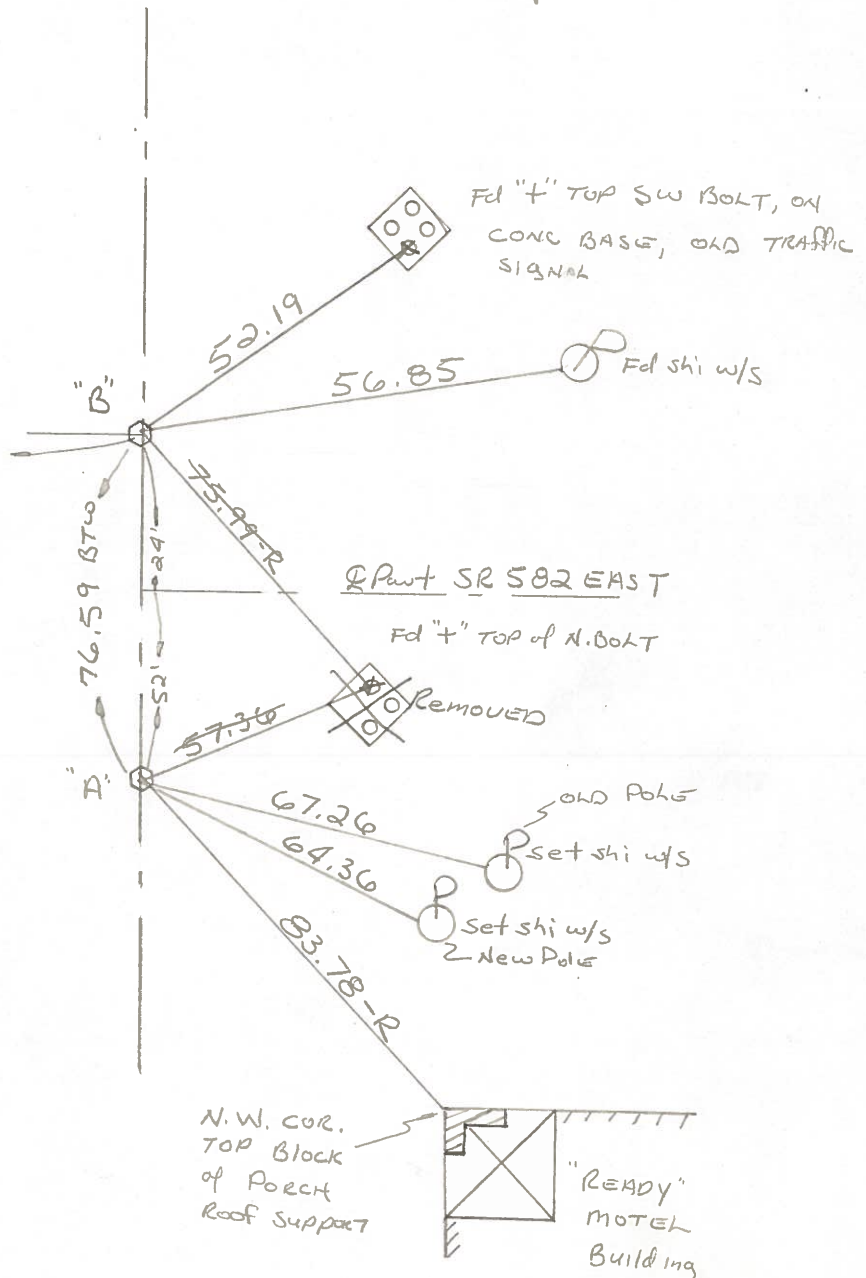 Fd "+" TOP SW BOLT, ON
CONC BASE, OLD TRAFFIC
SIGNAL
52.19
56.85
Fd shi w/s
"B"
75.99-R
76.59 BTW
24'
℄ Pavt SR 582 EAST
Fd "+" TOP of N. BOLT
52'
Removed
57.36
"A"
67.26
OLD POLE
Set shi w/s
64.36
Set shi w/s
New Pole
83.78-R
N.W. COR.
TOP Block
of PORCH
Roof Support
"READY"
MOTEL
Building